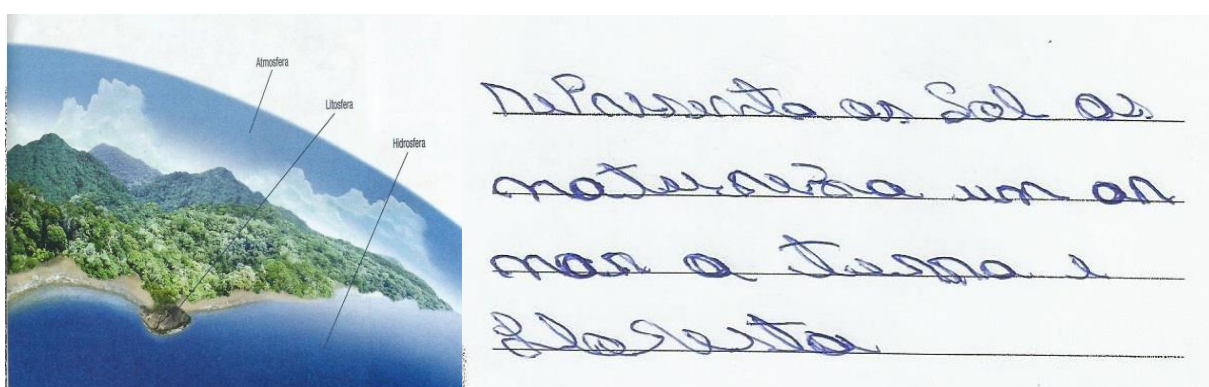 Atmosfera
Litosfera
Hidrosfera
rePresenta ar Sol as
um ar
mar a terra e
floresta